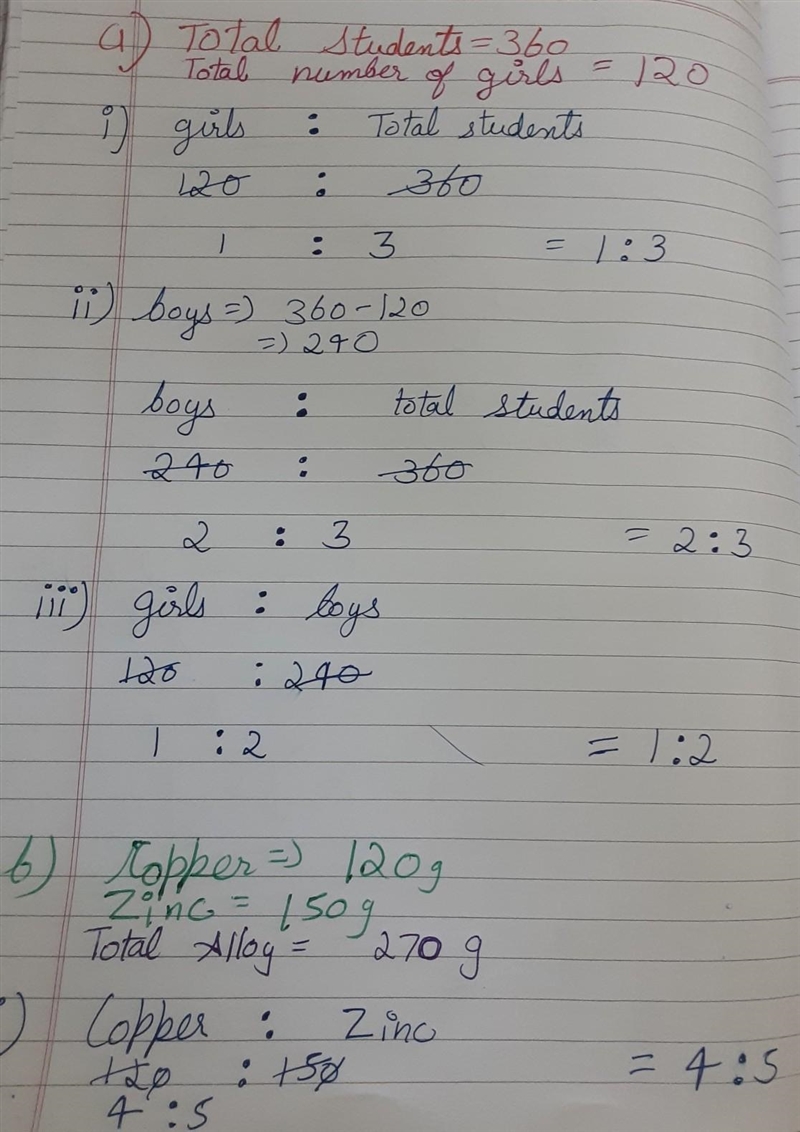 a) Total students = 360
Total number of girls = 120
i) girls : Total students
120 : 360
1 : 3 = 1:3
ii) boys => 360 - 120
=> 240
boys : total students
240 : 360
2 : 3 = 2:3
iii) girls : boys
120 : 240
1 : 2 = 1:2
b) Copper => 120g
Zinc = 150g
Total Alloy = 270 g
) Copper : Zinc
120 : 150 = 4:5
4 : 5